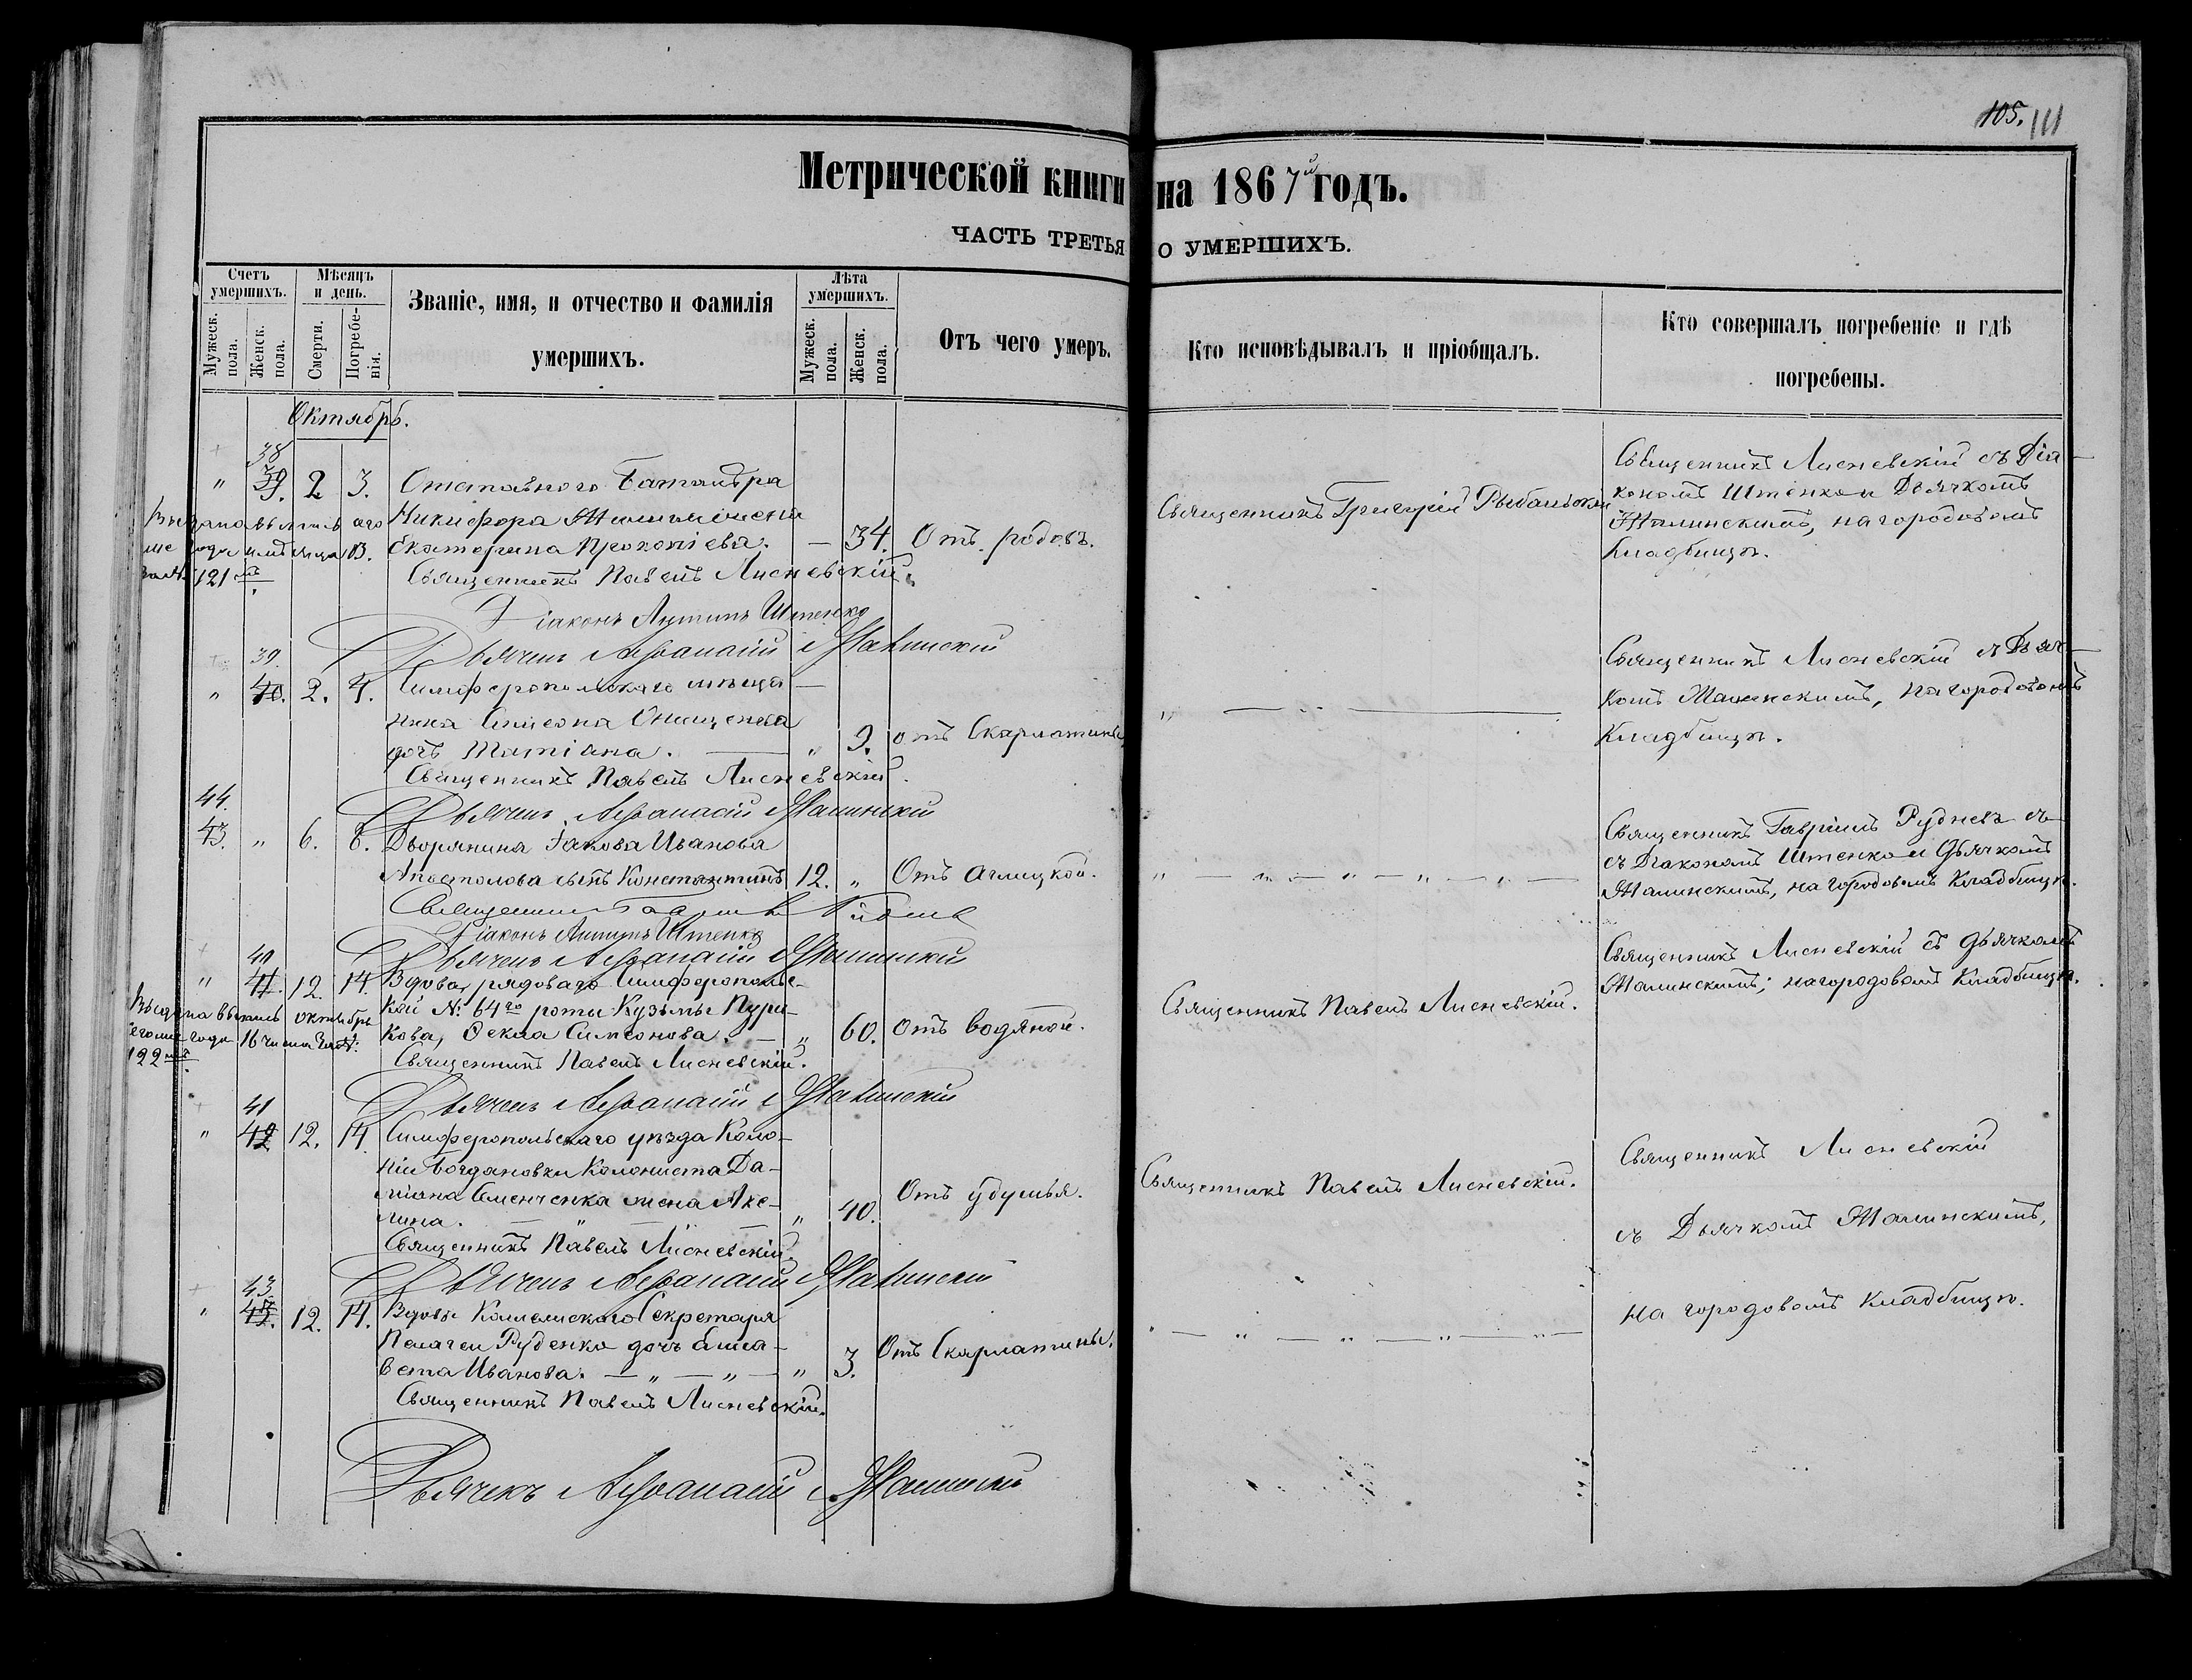 105. 111
Метрической книги на 1867й годъ.
ЧАСТЬ ТРЕТЬЯ О УМЕРШИХЪ.
Счетъ умершихъ.
Мужеск. пола.
Женск. пола.
Мѣсяцъ и день.
Смерти.
Погребенія.
Званіе, имя, и отчество и фамилія
умершихъ.
Лѣта умершихъ.
Мужеск. пола.
Женск. пола.
Отъ чего умеръ.
Кто исповѣдывалъ и пріобщалъ.
Кто совершалъ погребеніе и гдѣ
погребены.
Октябрь.
38
" 39. 2 3. Отставного
Никифора жена
Екатерина Прокопіева. — 34. Отъ родовъ.
Священникъ Павелъ Лисневскій.
121
Діаконъ Антипъ Штенко
Дьячекъ Афанасій Жалинскій
Священникъ Григорій
Священникъ Лисневскій съ Діа-
кономъ Штенкои Дьячкомъ
Жалинскимъ, на городовомъ
Кладбищѣ.
39.
" 40. 2. 4. Симферопольскаго мѣща-
нина Симеона Онищенка
дочь Татіана. — " 9. отъ Скарлатины
Священникъ Павелъ Лисневскій.
Дьячекъ Афанасій Жалинскій
Священникъ Лисневскій съ Дьяч-
комъ Жалинскимъ, на городовомъ
Кладбищѣ.
44.
43. " 6. 8. Дворянина Іакова Иванова
Апостолова сынъ Константинъ 12. " Отъ
Священникъ
Діаконъ Антипъ Штенко
Дьячекъ Афанасій Жалинскій
Священникъ Гавріилъ Рудневъ съ
съ Діакономъ Штенкои Дьячкомъ
Жалинскимъ, на городовомъ Кладбищѣ.
40
" 41. 12. 14. Вдова, рядоваго Симферополь-
кой № 64го роты Кузьмы Пури-
кова, Ѳекла Симеонова. — " 60. Отъ водяной.
Священникъ Павелъ Лисневскій.
октября
года 16 числа за №
122
Дьячекъ Афанасій Жалинскій
Священникъ Павелъ Лисневскій.
Священникъ Лисневскій съ дьячкомъ
Жалинскимъ; на городовомъ Кладбищѣ.
41
" 42 12. 14. Симферопольскаго уѣзда Коло-
ніи Богдановки Колониста Да-
міана Семенченка жена Аке-
лина. — " 40. Отъ удушья.
Священникъ Павелъ Лисневскій.
Дьячекъ Афанасій Жалинскій
Священникъ Павелъ Лисневскій.
Священникъ Лисневскій
съ Дьячкомъ Жалинскимъ,
на городовомъ Кладбищѣ.
43
" 12. 14. Вдовы Коллежскаго Секретаря
Пелагеи Руденко дочь Елиса-
вета Иванова. — " — " — " 3. Отъ Скарлатины.
Священникъ Павелъ Лисневскій.
Дьячекъ Афанасій Жалинскій